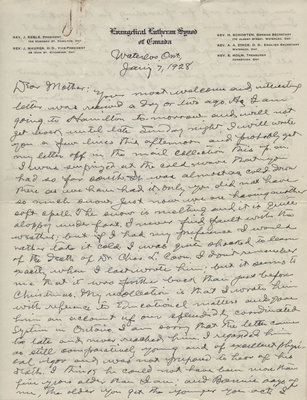 Evangelical Lutheran Synod
of Canada
REV. J. REBLE, PRESIDENT
REV. J. MAURER, D.D., VICE-PRESIDENT
REV. H. SCHORTEN, GERMAN SECRETARY
REV. A. A. ZINCK, D.D., ENGLISH SECRETARY
WATERLOO, ONT.
REV. E. HOLM, TREASURER
Waterloo Ont.
Jan'y 7, 1928
Dear Mother: Your most welcome and interesting
letter was received a day or two ago. As I am
going to Hamilton to-morrow and will not
get back until late Sunday night I will write
you a few lines this afternoon and probably get
my letter off in the mail collection this p.m.
I was surprised at the cold wave that you
had so far south. It was almost as cold down
there as we have had it, only you did not have
so much snow. Just now we are having another
soft spell. The snow is melting and it is quite
sloppy under foot. I never find fault with the
weather, but if I had my preference I would
rather take it cold. I was quite shocked to learn
of the death of Dr. Chas. L. I don't remember
exactly when I last wrote him but it seems to
me that it was farther back than just before
Christmas. My recollection is that I wrote him
with reference to Educational matters and gave
him an account of our splendidly coordinated
system in Ontario. I am sorry that the letter came
too late and never reached him. I regarded him
as still comparatively young and of excellent physi-
cal vigor and was not prepared to hear of his
death. I think he could not have been more than
four years older than I am: and Bonnie says of
me, the older you get the younger you act. I